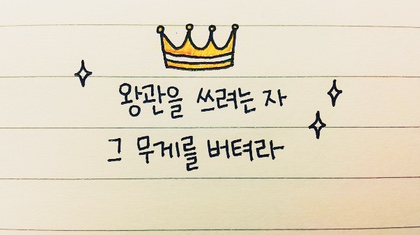 왕관을 쓰려는 자
그 무게를 버텨라